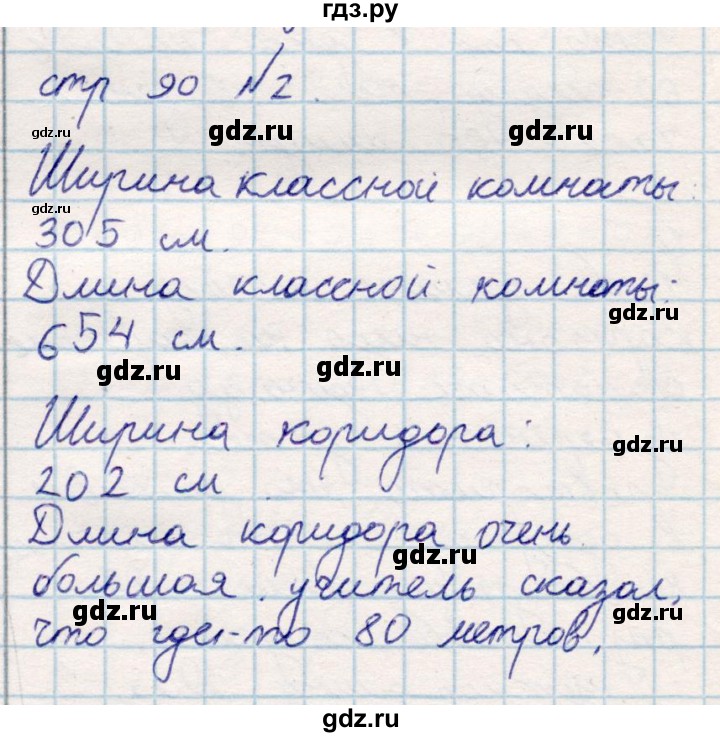 гдз.ру
стр 90 №2.
gdz.ru
gdz.ru gdz.ru
Ширина классной комнаты:
gdz.ru
305 см.
Длина классной комнаты:
gdz.ru
654 см.
gdz.ru gdz.ru
Ширина коридора:
gdz.ru
202 см
Длина коридора очень
gdz.ru
большая. учитель сказал,
gdz.ru gdz.ru
что где-то 80 метров.
gdz.ru